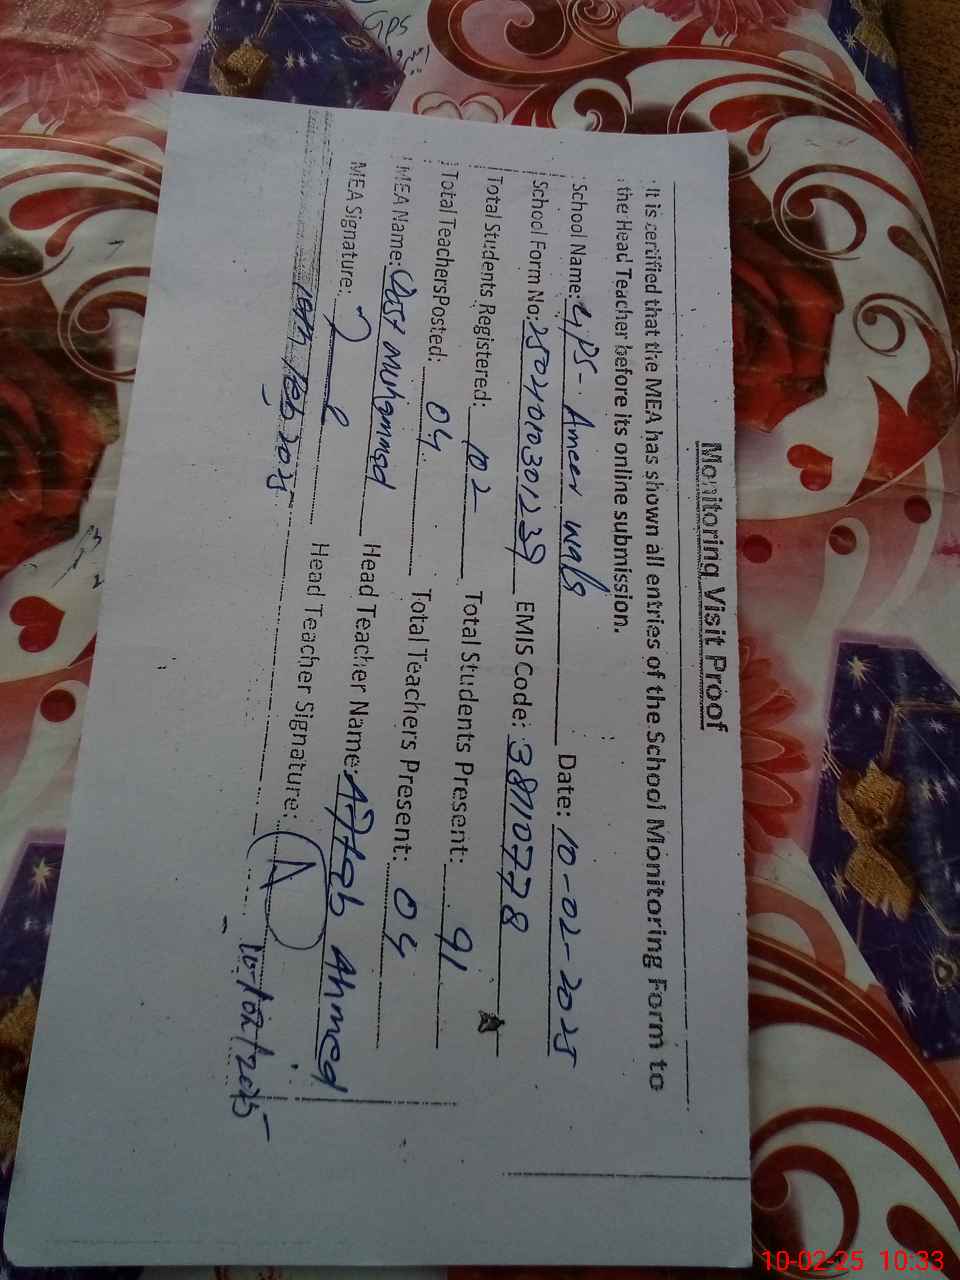 Monitoring Visit Proof
It is certified that the MEA has shown all entries of the School Monitoring Form to
the Head Teacher before its online submission.
School Name: GPS - Ameer wala Date: 10-02-2025
School Form No: 25021010301239 EMIS Code: 38110778
Total Students Registered: 102 Total Students Present: 91
Total TeachersPosted: 04 Total Teachers Present: 04
MEA Name: Dost Muhammad Head Teacher Name: Aftab Ahmed
MEA Signature: Head Teacher Signature: A
10th Feb 2025 10/02/2025
GPS
10-02-25 10:33